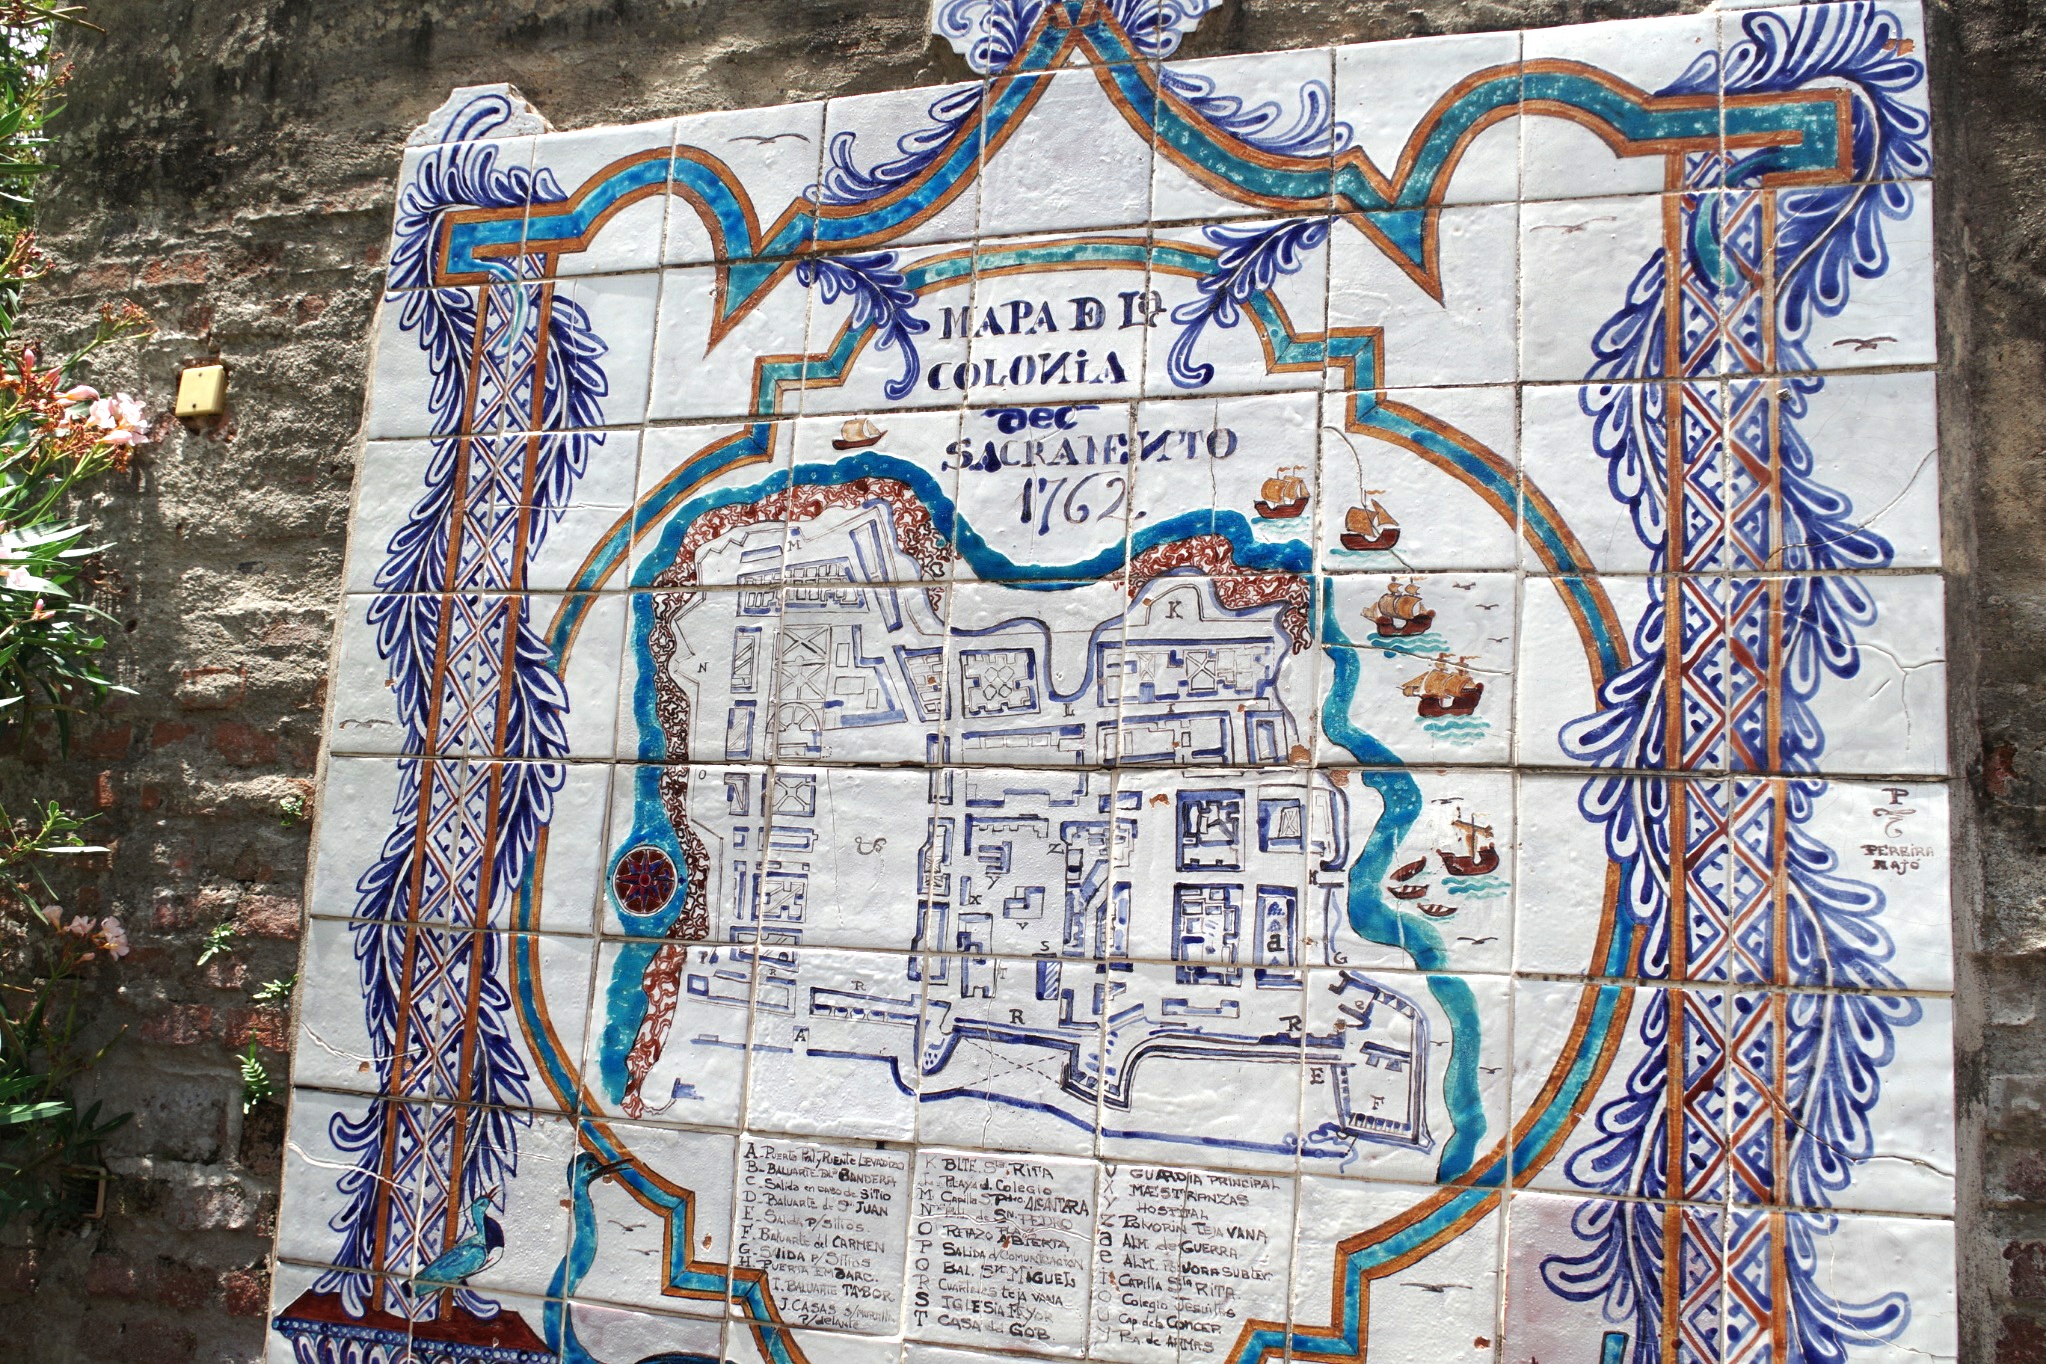 MAPA DE La
COLONIA
del
SACRAMENTO
1762.
M
K
N
L
I
O
Z
Y
X
V
S
T
H
a
G
e
P
R
R
R
R
A
E
F
P
PEREIRA
RAJO
A_ PUERTA Pal y PUENTE LEVADIZO
B_ BALUARTE DLa BANDERA
C_ Salida en caso de SITIO
D_ Baluarte de Sn JUAN
E_ Salida p/Sitios
F_ Baluarte del CARMEN
G_ SALIDA P/ SITIOS
H_ PUERTA EMBARC.
I. BALUARTE TABOR
J. CASAS S/ muralla
P/delante
K BLTE. Sta. RITA
Playa d. Colegio
M Capilla S. Pdro ALCANTARA
N de Sn. PEDRO
O REFAZO ABIERTA
P SALIDA d/Comunicacion
Q BAL. Sn MIGUEL
R Cuarteles teja VANA
S IGLESIA MYOR
T CASA del GOB.
V GUARDIA PRINCIPAL
X MAESTRANZAS
Y HOSPITAL
Z POLVORIN TEJA VANA
a ALM. de GUERRA
e ALM. POLVORA SUBTER.
I Capilla Sta RITA.
O Colegio Jesuitas
U Cap. de la Concep.
Y Pza. de ARMAS